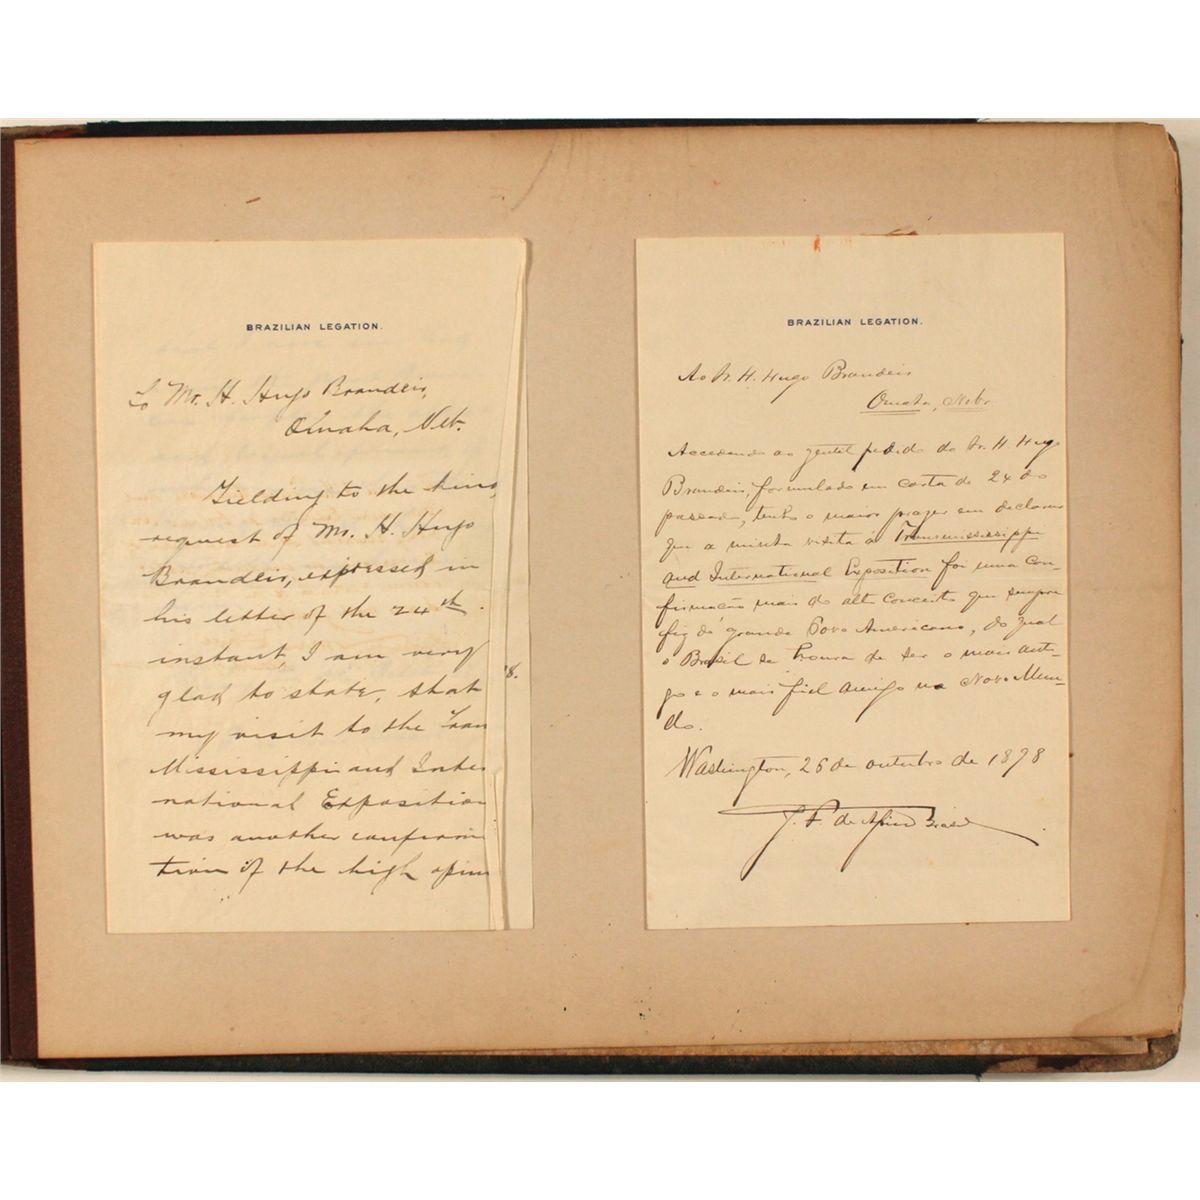 BRAZILIAN LEGATION.
To Mr. H. Hugo Brandeis,
Omaha, Neb.
Yielding to the kind
request of Mr. H. Hugo
Brandeis, expressed in
his letter of the 24th.
instant, I am very
glad to state, that
my visit to the Tran
Mississippi and Inter
national Exposition
was another confirm
tion of the high opin
8.
BRAZILIAN LEGATION.
Ao Sr. H. Hugo Brandeis
Omaha, Nebr.
Accedendo ao gentil pedido do Sr. H. Hugo
Brandeis, formulado em carta de 24 do
passado, tenho o maior prazer em declarar
que a minha visita á Transmississippi
and International Exposition foi uma con-
firmação mais do alto conceito que sempre
fiz do grande Povo Americano, do qual
o Brasil se honra de ser o mais anti-
go e o mais fiel amigo no Novo Mun-
do.
Washington, 26 de outubro de 1898
J. F. de Assis Brasil